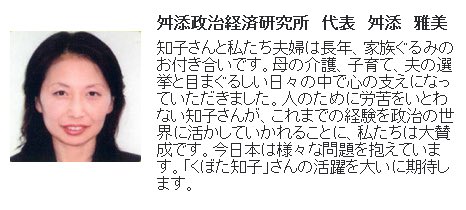 舛添政治経済研究所　代表　舛添　雅美
知子さんと私たち夫婦は長年、家族ぐるみの
お付き合いです。母の介護、子育て、夫の選
挙と目まぐるしい日々の中で心の支えになっ
ていただきました。人のために労苦をいとわ
ない知子さんが、これまでの経験を政治の世
界に活かしていかれることに、私たちは大賛
成です。今日本は様々な問題を抱えていま
す。「くぼた知子」さんの活躍を大いに期待し
ます。